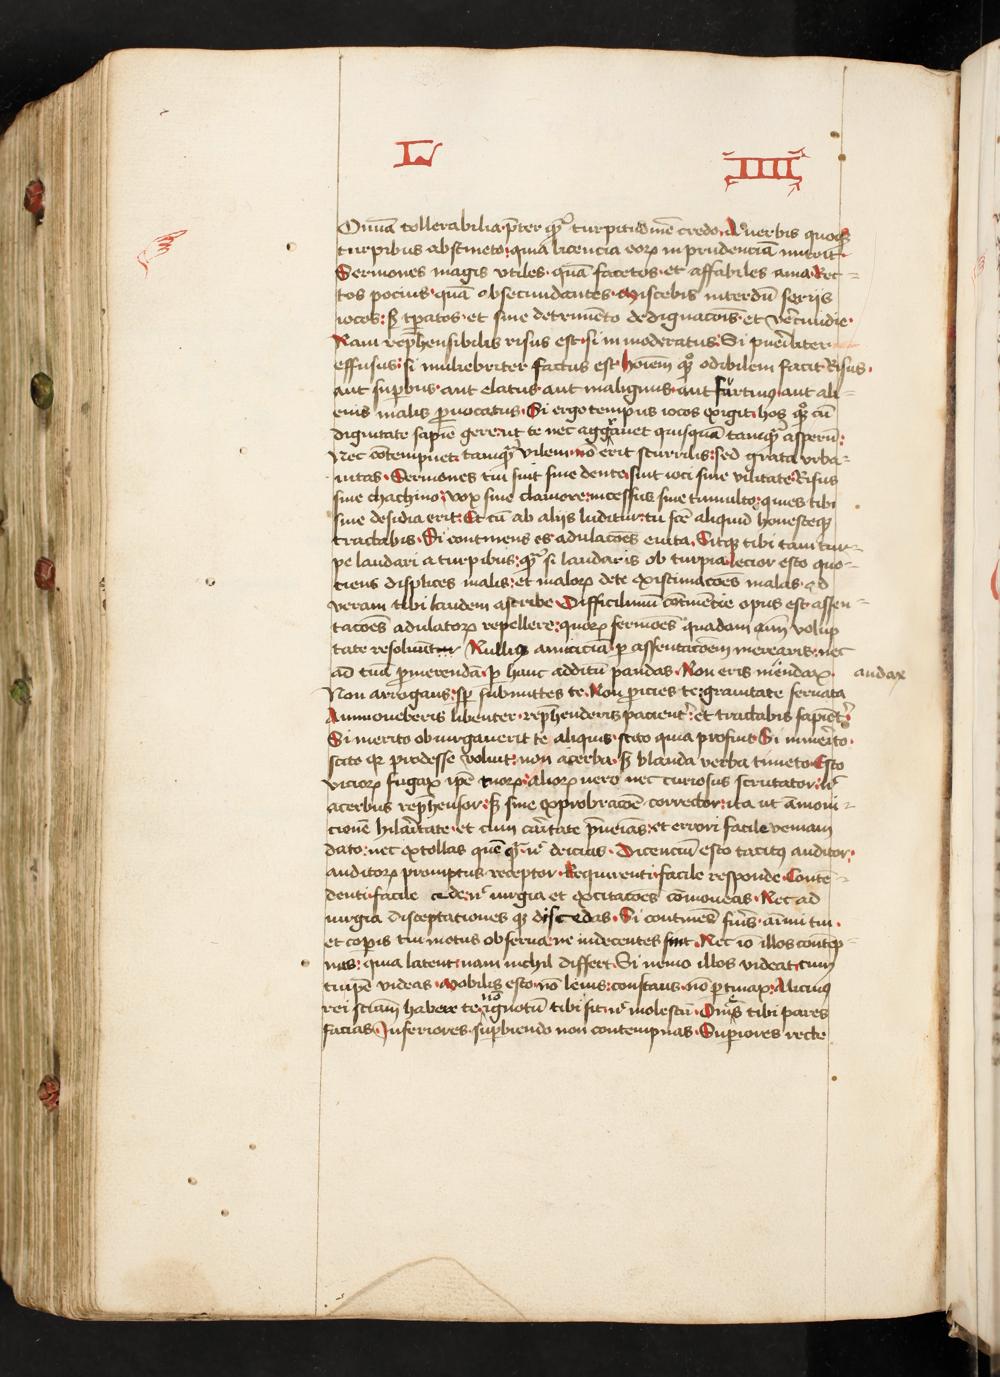 L IIII
Omĩa tollerabilia p̃ter q̃ꝫ turpitudinẽ credo. A verbis quoqꝫ
turpibus abstineto: quia licencia eoꝝ inprudenciã nutrit.
Sermones magis vtiles. quã facetos. et affabiles ama. Rec=
tos pocius. quã obsecundantes. Miscebis interdũ seriis
iocos: sꝫ tꝑatos. et sine detrimẽto dedignacõis. et ve᷑cundie.
Nam rep̃hensibilis risus est. si inmoderatus. Si pueriliter
effusus: si muliebriter factus est. hoiem̃ qͦꝫ odibilem facit Risus.
aut suꝑbus. aut elatus. aut malignus. aut furtiuꝰ. aut ali=
enis malis ꝓuocatus. Si ergo tempus iocos exigit. hos qͦꝫ cũ
dignitate sapiẽ gere. ut te nec aggrauet quisquã tamqͣꝫ asperũ:
Nec cõtempnet. tamqͣꝫ vilem. nõ erit scurrilis: sed grata vrba=
nitas. Sermones tui sint sine dente. sint ioci sine vilitate. Risus
sine chachino: vox sine clamore: incessus sine tumulto: quies tibi
sine desidia erit. Et cũ ab aliis luditur. tu sc̃e aliquid honesteqꝫ
tractabis. Si continens es adulacões euita. Sitqꝫ tibi tam tur=
pe laudari a turpibus: qͣꝫ si laudaris ob turpia. lecior esto quo=
ciens displices malis: et maloꝝ de te existimacões malas. ad
veram tibi laudem ascribe. Difficilimũ cõtinẽtie opus est. assen=
tacões adulatoꝝ repellere: quoꝝ sermões quadam aiñ volup
tate resoluũt. Nulliꝰ amiciciã ꝑ assentacõem merearis. nec
ad tuã ꝓmerendã. ꝑ hanc additũ pandas. Non eris mendax. audax
Non arrogans: sꝑ submittes te. Non ꝓicies te: grauitate seruata
Ammoneberis libenter. rep̃henderis pacient̃: et tractabis sapiẽt̃.
Si merito obiurgauerit te aliquis. scito quia profuit. Si inmerito.
scito qꝛ prodesse voluit: non acerba. sꝫ blanda verba timeto. Esto
vicioꝝ fugax ip̃e tuoꝝ. alioꝝ uero nec curiosus scrutator: nͨ
acerbus rep̃hensor: sꝫ sine exprobracõe corrector: ita ut ãmoni=
cionẽ hilaritate. et cum caritate p̃uenias: et errori facile veniam
dato: nec extollas quẽqͣꝫ. nͨ deicias. Dicenciũ esto tacitꝰ auditor:
auditoꝝ promptus receptor. Requirenti facile responde. Conte=
denti facile cede: nͨ iurgia et excitacões cõmoueas. Nec ad
iurgia disceptationes qꝫ discedas. Si continẽs fuĩs. animi tui.
et corꝑis tui motus obserua ne indecentes sint. Nec iõ illos contẽp=
nas: quia latent: nam nichil differt. Si nemo illos videat. cum
tu ip̃e videas. Mobilis esto. nõ leuis: constans. nõ ꝑtinax: Alicuiꝰ
rei sciam̃ habere te. nõ ignotũ tibi sit. nͨ molestũ. Oms̃ tibi pares
facias. Inferiores. suꝑbiendo non contempnas. Suꝑiores recte